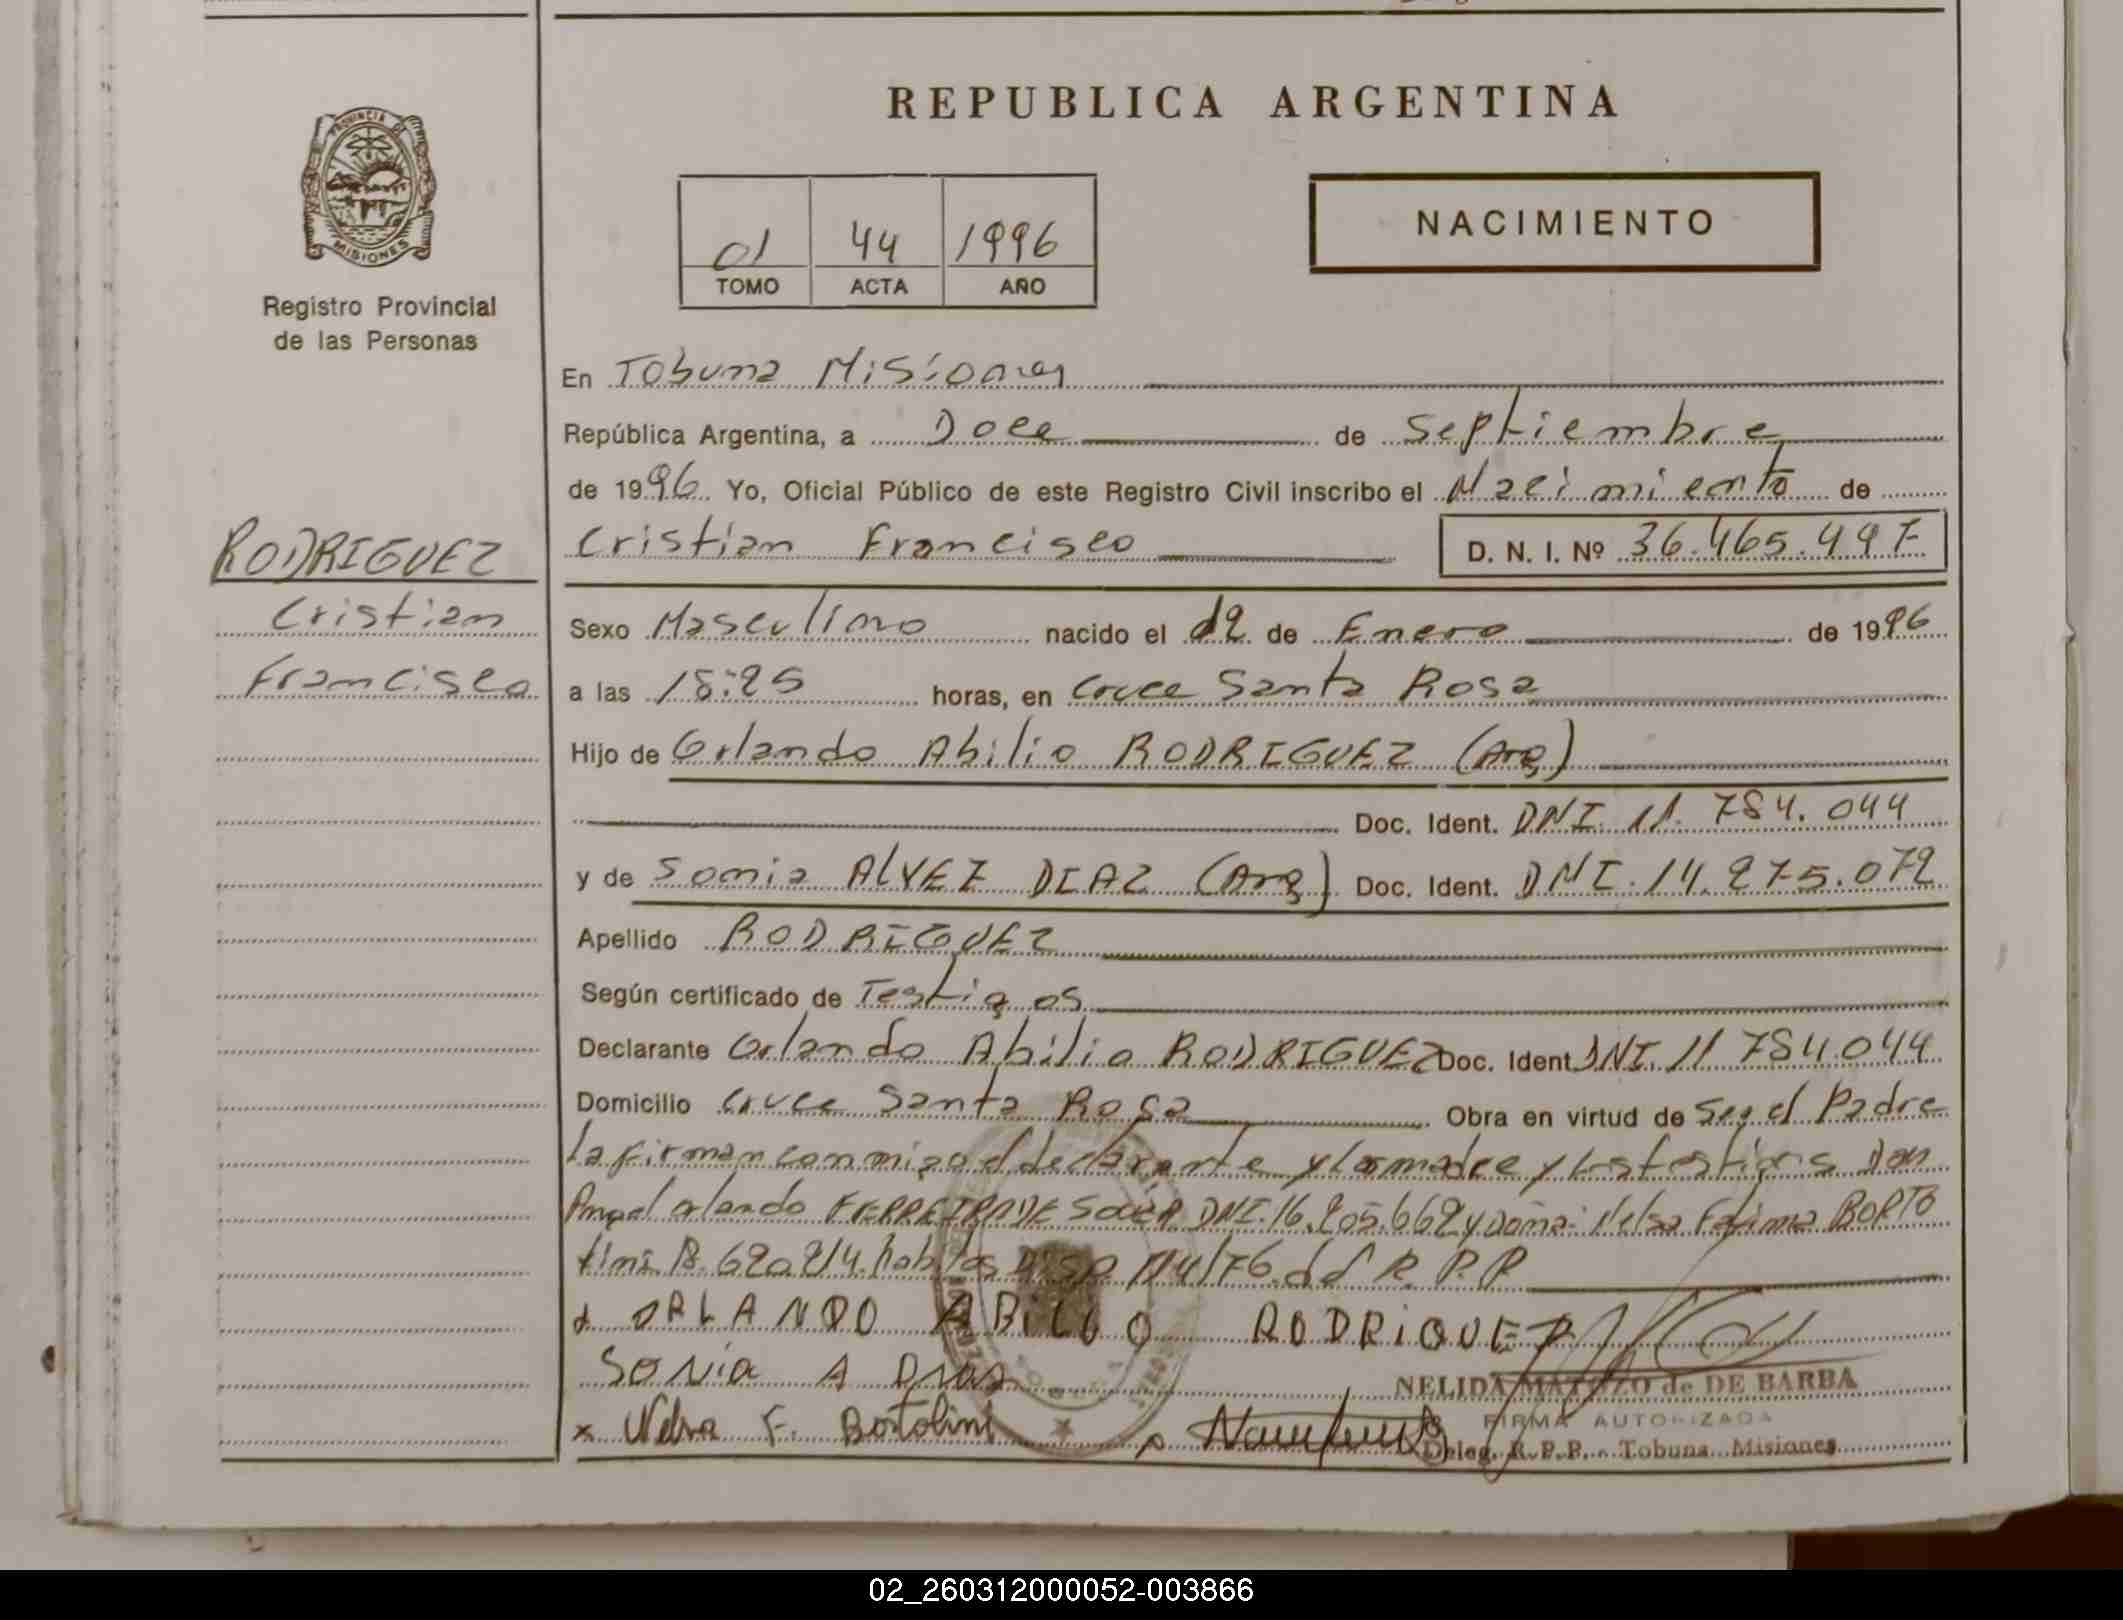 REPUBLICA ARGENTINA
PROVINCIA DE
MISIONES
Registro Provincial
de las Personas
01 44 1996
TOMO ACTA AÑO
NACIMIENTO
En Tobuna Misiones
República Argentina, a Doce de Septiembre
de 1996 Yo, Oficial Público de este Registro Civil inscribo el Nacimiento de
RODRIGUEZ
Cristian
Francisco
Cristian Francisco D. N. I. Nº 36.465.497
Sexo Masculino nacido el 12 de Enero de 1996
a las 18:25 horas, en Cruce Santa Rosa
Hijo de Orlando Abilio RODRIGUEZ (Arg)
Doc. Ident. DNI. 11.784.044
y de Sonia ALVEZ DIAZ (Arg) Doc. Ident. DNI. 14.275.072
Apellido RODRIGUEZ
Según certificado de Testigos
Declarante Orlando Abilio RODRIGUEZ Doc. Ident DNI. 11 784.044
Domicilio Cruce Santa Rosa Obra en virtud de Ser el Padre
la firman conmigo el declarante y la madre y los testigos Don
Angel Orlando FERREIRA DE SOUZA DNI. 16.205.662 y Doña: Nelsa Fatima BORTO
lini 18.620.214. hab los Disp 114/76. del R. P. P.
ORLANDO ABILIO RODRIGUEZ
SONIA A Dias
x Nelsa F. Bortolini
NELIDA de DE BARBA
FIRMA AUTORIZADA
Deleg. R.P.P. - Tobuna Misiones
02_260312000052-003866